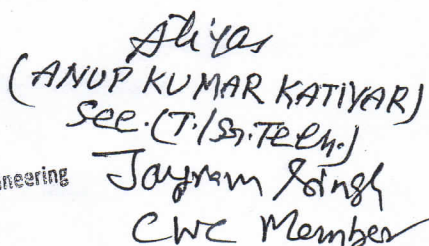 (ANUP KUMAR KATIYAR)
See. (T./Sn.Tech.)
neering
Jayram Singh
CWC Member